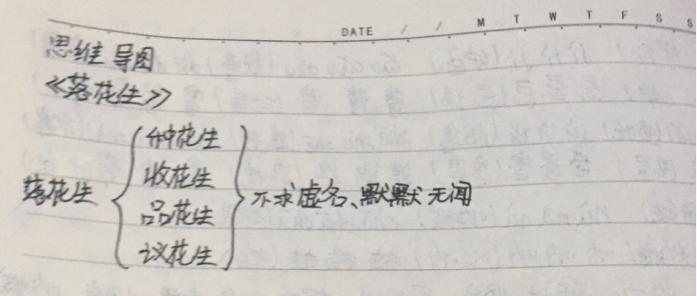 DATE / / M T W T F S S
思维导图
《落花生》
种花生
收花生
落花生 不求虚名、默默无闻
品花生
议花生